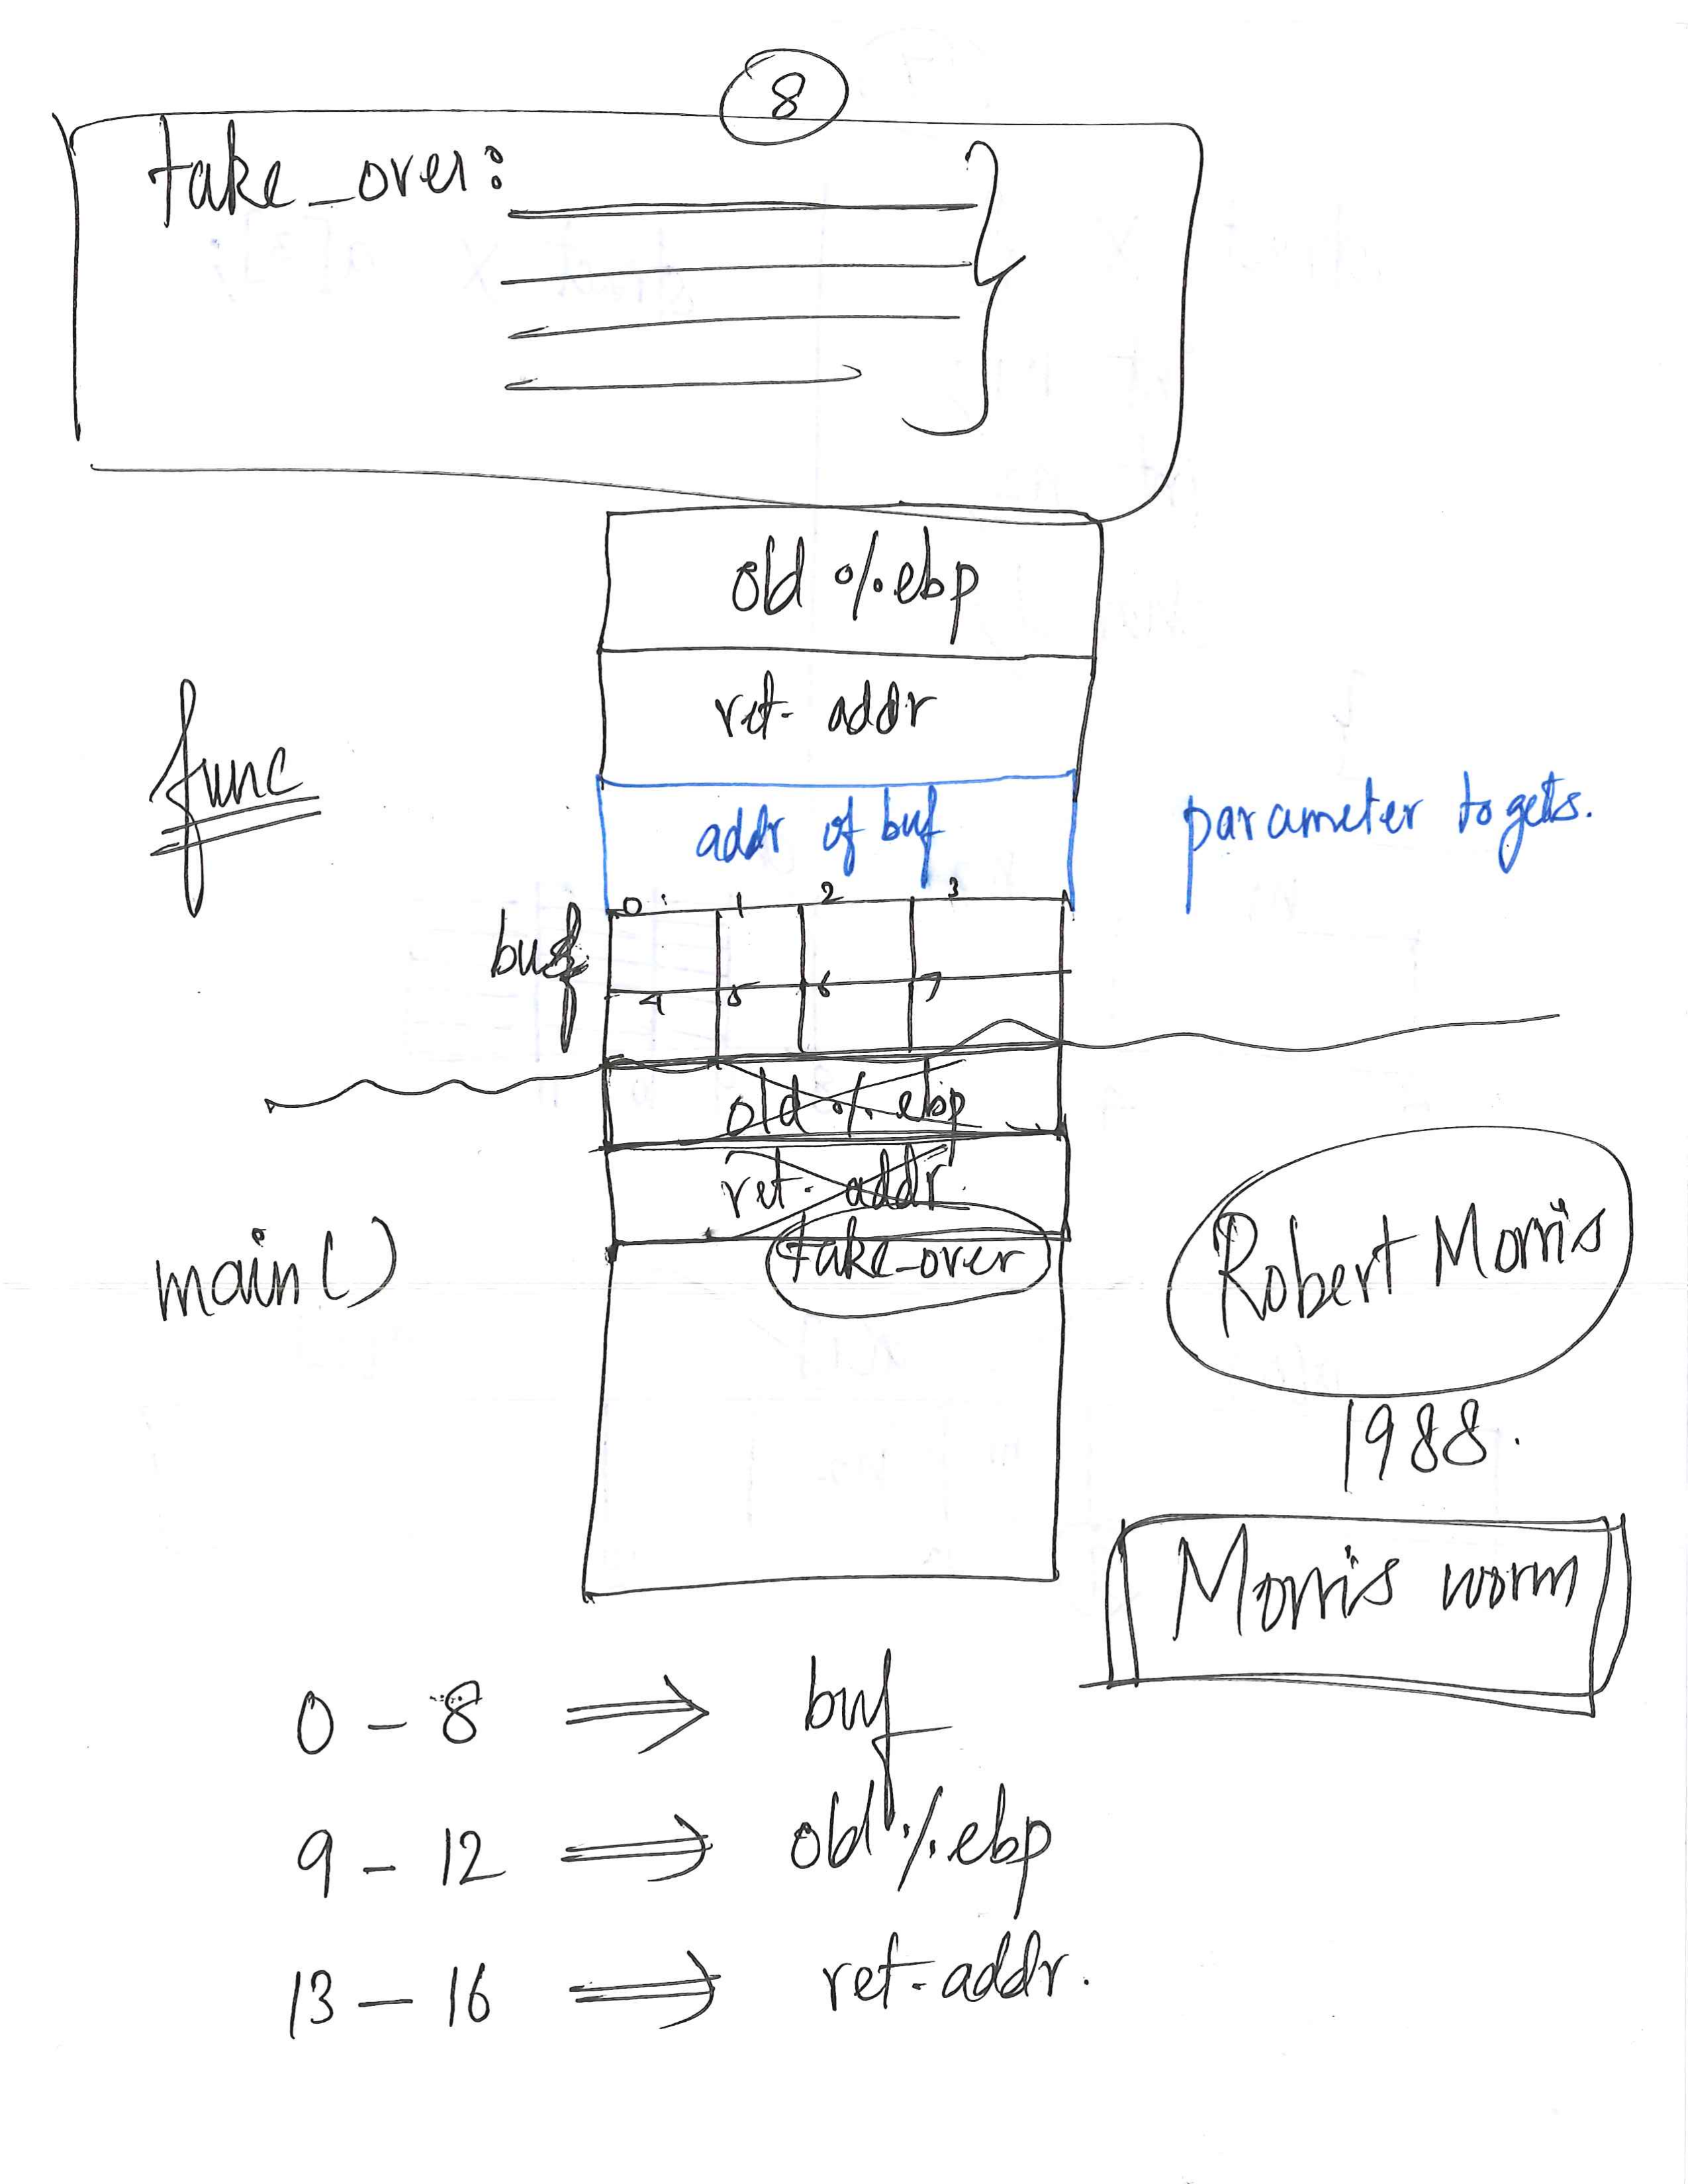 8
take_over:
old %ebp
ret. addr
func
addr of buf
parameter to gets.
0 1 2 3
buf
4 5 6 7
old % ebp
ret. addr.
take_over
main()
Robert Morris
1988.
Morris worm
0 - 8 ⇒ buf
9 - 12 ⇒ old %ebp
13 - 16 ⇒ ret. addr.